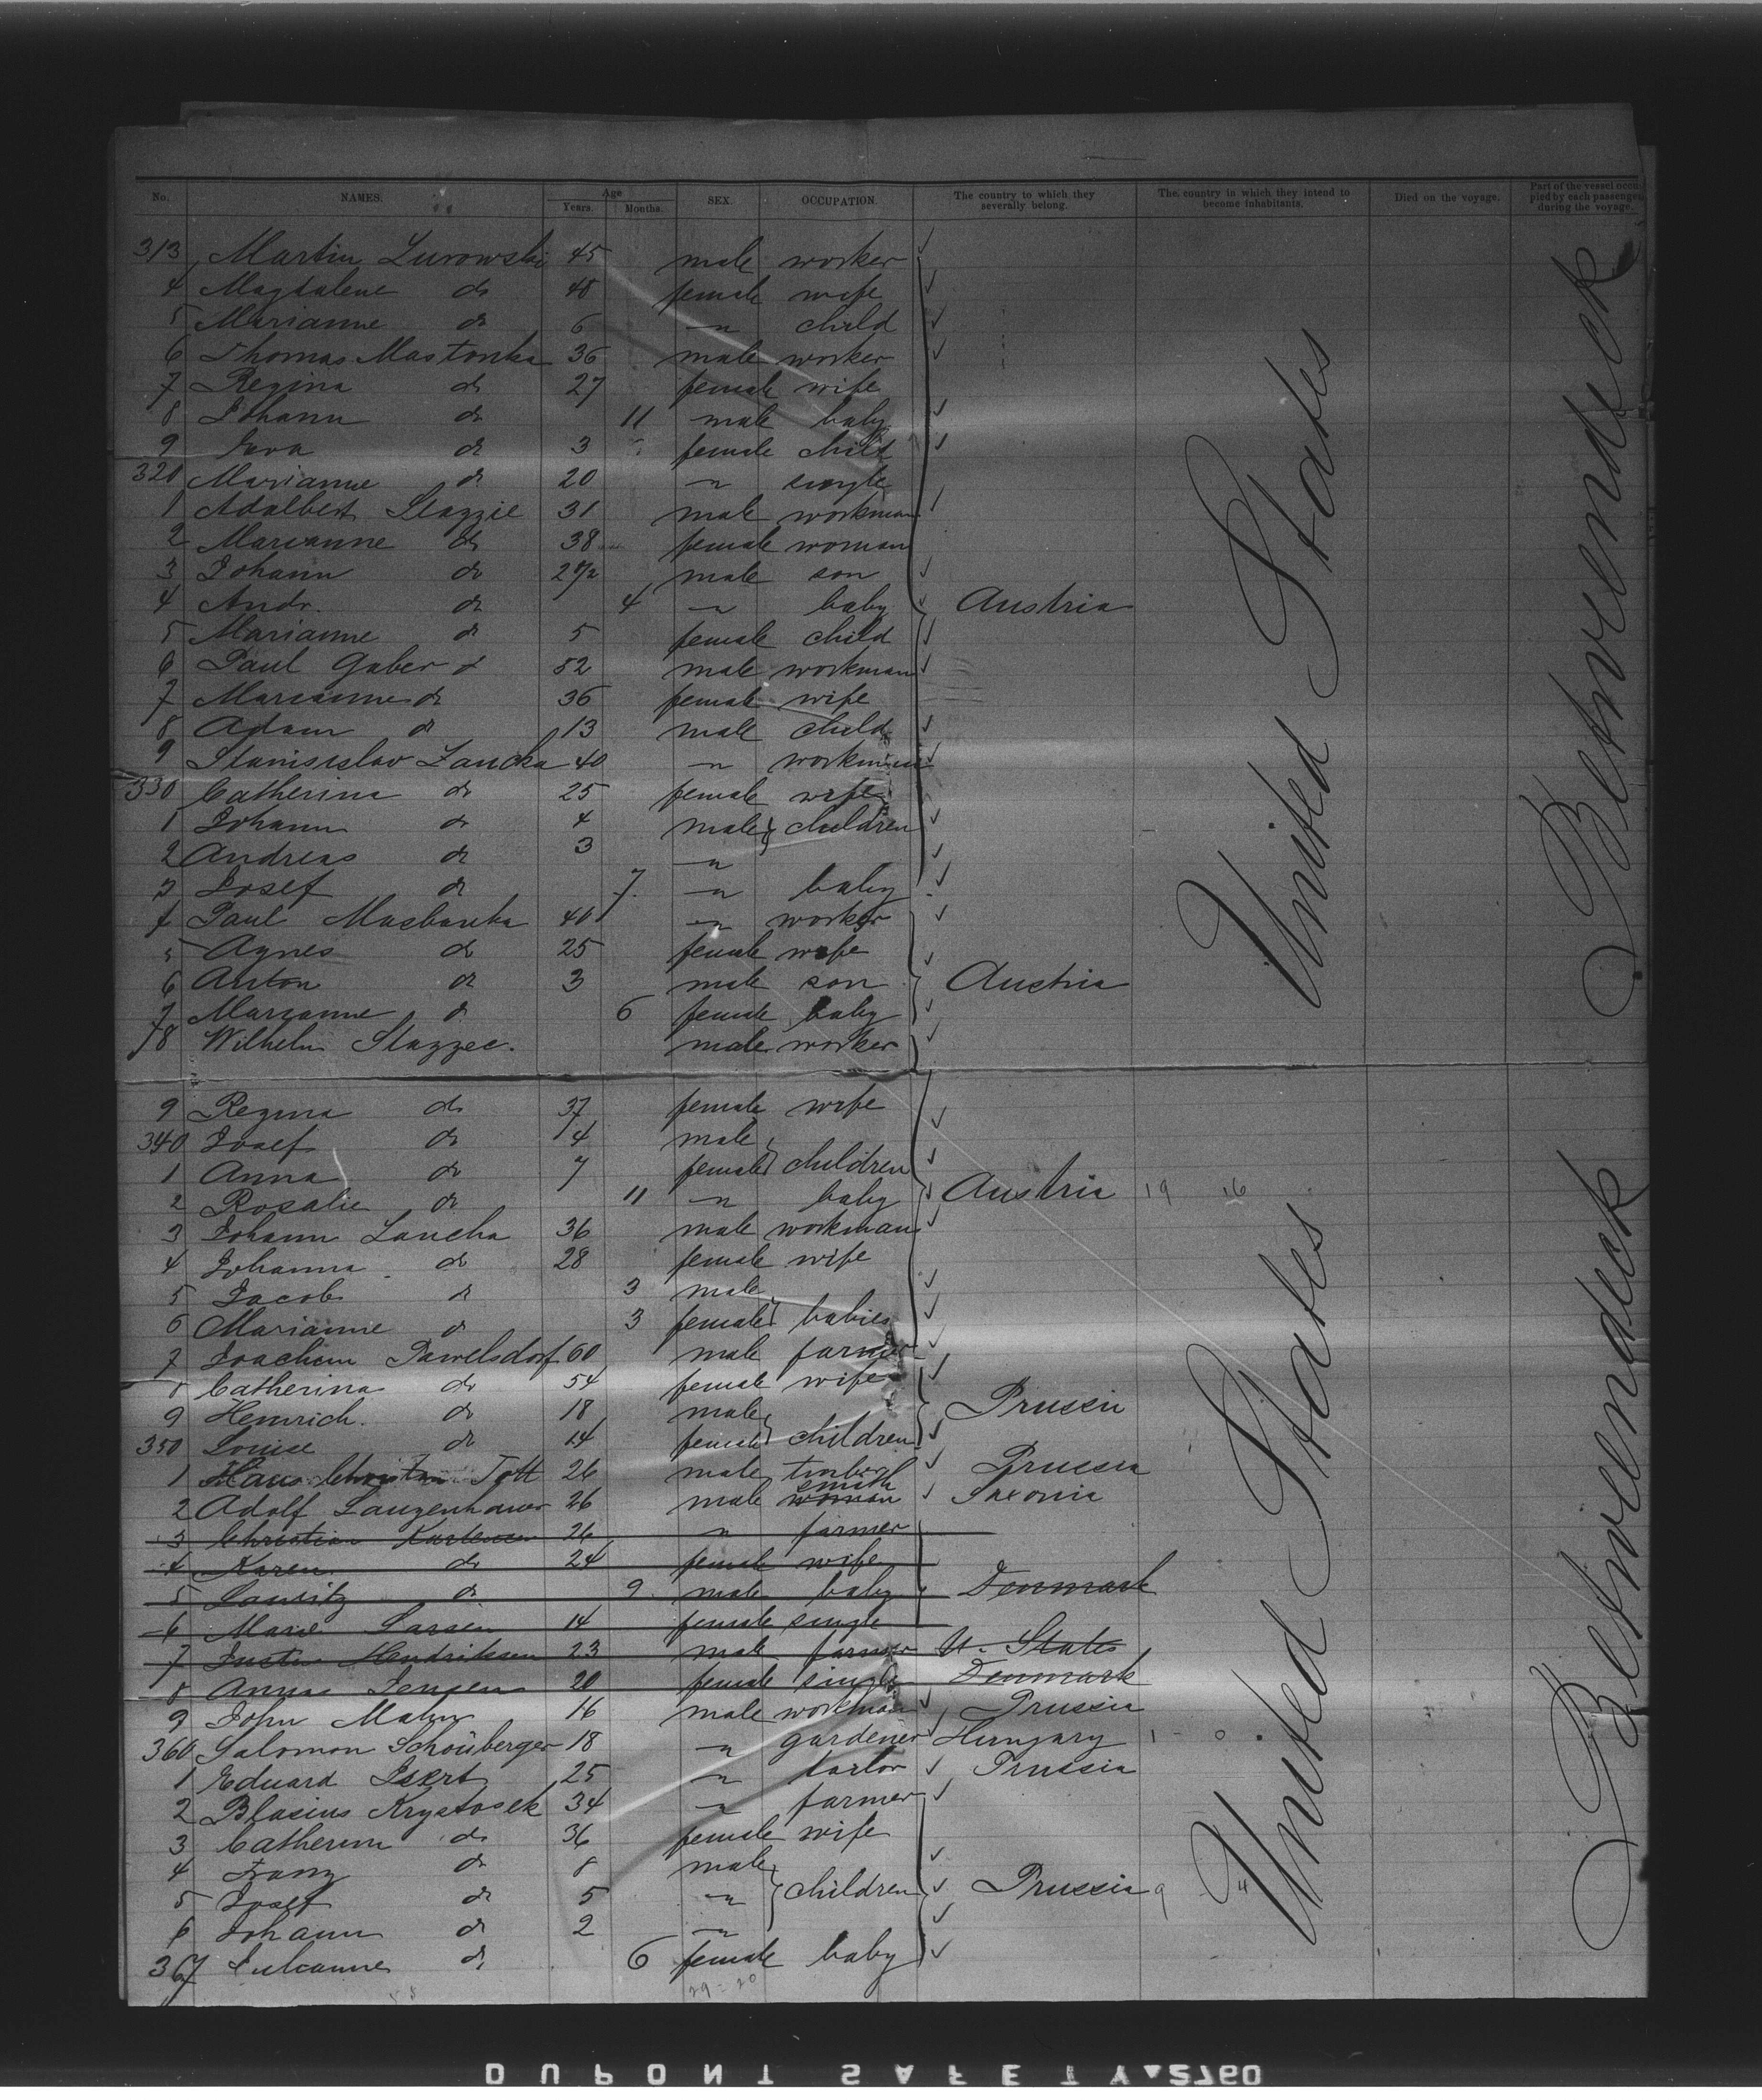 No. NAMES. Age Years. Months. SEX. OCCUPATION. The country to which they severally belong. The country in which they intend to become inhabitants. Died on the voyage. Part of the vessel occupied by each passenger during the voyage.
313 Martin Lurowski 45 male worker
4 Magdalene do 48 female wife
5 Marianne do 6 " child
6 Thomas Mastonka 36 male worker
7 Regina do 27 female wife
8 Johann do 11 male baby
9 do 3 female child
320 Marianne do 20 " single
1 Adalbert 31 male workman
2 Marianne do 38 female woman
3 Johann do 2 1/2 male son
4 Andr. do 4 " baby Austria
5 Marianne do 5 female child
6 Paul Gaber 52 male workman
7 Marianne do 36 female wife
8 Adam do 13 male child
9 Stanisislav Lancha 40 " workman
330 Catherina do 25 female wife
1 Johann do 4 male children
2 Andreas do 3 "
3 Josef do 7. " baby
4 Paul 40 " worker
5 Agnes do 25 female wife
6 Anton do 3 male son Austria
7 Marianne do 6 female baby
8 Wilhelm Stazzec. male worker
United States
Betweendeck
9 Regina do 37 female wife
340 Josef do 4 male
1 Anna do 7 female children
2 Rosalie do 11 " baby Austria 19 16
3 Johann Lancha 36 male workman
4 Johanna do 28 female wife
5 Jacob do 3 male
6 Marianne do 3 female babies
7 Joachim Pawelsdorf 60 male farmer
8 Catherina do 54 female wife
9 Heinrich. do 18 male Prussia
350 Louise do 14 female children
1 Hans Christian Tott 26 male Prussia
smith
2 Adolf Langenhauer 26 male woman Saxonia
3 Christian 26 " farmer
4 Karen do 24 female wife
5 Lauritz do 9 male baby Denmark
6 Marie Larsen 14 female single
7 Hendriksen 23 male farmer U. States
8 Anna Jensen 20 female single Denmark
9 John 16 male workman Prussia
360 Salomon Schönberger 18 " gardener Hungary 1 - 0
1 Eduard 25 " tailor Prussia
2 Blasius Krystosek 34 " farmer
3 Catherin do 36 female wife
4 Franz do 8 male
5 Josef do 5 " children Prussia 9 4
6 Johann do 2 "
367 Julianne do 6 female baby
United States
Betweendeck
29 = 20
DUPONT SAFETY 2760